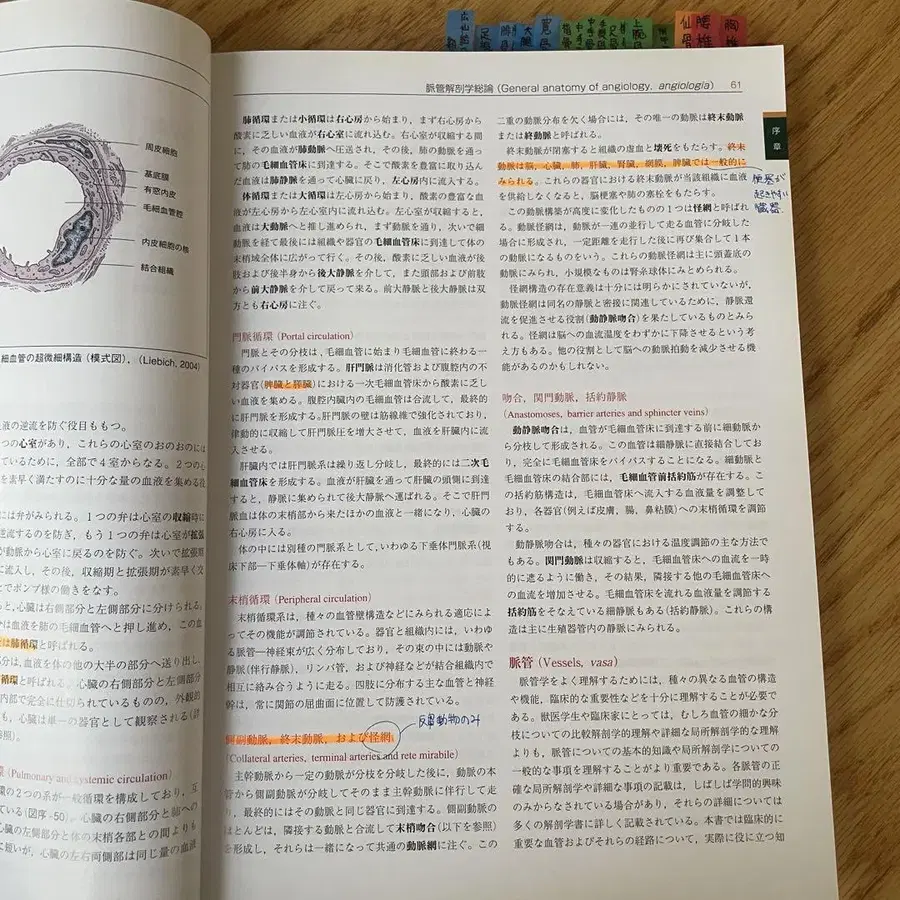 脈管解剖学総論 (General anatomy of angiology, angiologia) 61
序章
周皮細胞
基底膜
有窓内皮
毛細血管腔
内皮細胞の核
結合組織
細血管の超微細構造（模式図）．(Liebich, 2004)
血液の逆流を防ぐ役目ももつ。
つの心室があり，これらの心室のおのおのには
ているために，全部で4室からなる。2つの心
を素早く満たすのに十分な量の血液を集める役
には弁がみられる。1つの弁は心室の収縮時に
逆流するのを防ぎ，もう1つの弁は心室が拡張
が動脈から心室に戻るのを防ぐ。次いで拡張期
に流入し，その後，収縮期と拡張期が素早く交
とでポンプ様の働きをなす。
と，心臓は右側部分と左側部分に分けられる。
分は血液を肺の毛細血管へと押し進め，この血
は肺循環と呼ばれる。
部分は，血液を体の他の大半の部分へ送り出し，
循環と呼ばれる。心臓の右側部分と左側部分
内部で完全に仕切られているものの，外観的
も，心臓は単一の器官として観察される（詳
参照）。
環 (Pulmonary and systemic circulation)
環の2つの系が一般循環を構成しており，互
ている（図序-50）。心臓の右側部分と肺への
心臓の左側部分と体の末梢各部との間よりも
に短いが，心臓の左右両側部は同じ量の血液
肺循環または小循環は右心房から始まり，まず右心房から
酸素に乏しい血液が右心室に流れ込む。右心室が収縮する間
に，その血液が肺動脈へ圧送され，その後，肺の動脈を通っ
て肺の毛細血管床に到達する。そこで酸素を豊富に取り込ん
だ血液は肺静脈を通って心臓に戻り，左心房内に流入する。
体循環または大循環は左心房から始まり，酸素の豊富な血
液が左心房から左心室内に流れ込む。左心室が収縮すると，
血液は大動脈へと推し進められ，まず動脈を通り，次いで細
動脈を経て最後には組織や器官の毛細血管床に到達して体の
末梢域全体に広がって行く。その後，酸素に乏しい血液が後
肢および後半身から後大静脈を介して，また頭部および前肢
から前大静脈を介して戻って来る。前大静脈と後大静脈は双
方とも右心房に注ぐ。
門脈循環 (Portal circulation)
門脈とその分枝は，毛細血管に始まり毛細血管に終わる一
種のバイパスを形成する。肝門脈は消化管および腹腔内の不
対器官（脾臓と膵臓）における一次毛細血管床から酸素に乏し
い血液を集める。腹腔内臓内の毛細血管は合流して，最終的
に肝門脈を形成する。肝門脈の壁は筋線維で強化されており，
律動的に収縮して肝門脈圧を増大させて，血液を肝臓内に流
入させる。
肝臓内では肝門脈系は繰り返し分岐し，最終的には二次毛
細血管床を形成する。血液が肝臓を通って肝臓の頭側に到達
すると，静脈に集められて後大静脈へ運ばれる。そこで肝門
脈血は体の末梢部から来たほかの血液と一緒になり，心臓の
右心房に入る。
体の中には別種の門脈系として，いわゆる下垂体門脈系（視
床下部—下垂体軸）が存在する。
末梢循環 (Peripheral circulation)
末梢循環系は，種々の血管壁構造などにみられる適応によ
ってその機能が調節されている。器官と組織内には，いわゆ
る脈管—神経束が広く分布しており，その束の中には動脈や
静脈（伴行静脈），リンパ管，および神経などが結合組織内で
相互に絡み合うように走る。四肢に分布する主な血管と神経
幹は，常に関節の屈曲面に位置して防護されている。
反芻動物のみ
側副動脈，終末動脈，および怪網
(Collateral arteries, terminal arteries and rete mirabile)
主幹動脈から一定の動脈が分枝を分岐した後に，動脈の本
管から側副動脈が分岐してそのまま主幹動脈に伴行して走
り，最終的にはその動脈と同じ器官に到達する。側副動脈の
ほとんどは，隣接する動脈と合流して末梢吻合（以下を参照）
を形成し，それらは一緒になって共通の動脈網に注ぐ。この
二重の動脈分布を欠く場合には，その唯一の動脈は終末動脈
または終動脈と呼ばれる。
終末動脈が閉塞すると組織の虚血と壊死をもたらす。終末
動脈は脳，心臓，肺，肝臓，腎臓，網膜，脾臓では一般的に
みられる。これらの器官における終末動脈が当該組織に血液
を供給しなくなると，脳梗塞や肺の塞栓をもたらす。
梗塞が
起きやすい
臓器
この動脈構築が高度に変化したものの1つは怪網と呼ばれ
る。動脈怪網は，動脈が一連の並行して走る血管に分岐した
場合に形成され，一定距離を走行した後に再び集合して1本
の動脈になるものをいう。これらの動脈怪網は主に頭蓋底の
動脈にみられ，小規模なものは腎糸球体にみとめられる。
怪網構造の存在意義は十分には明らかにされていないが，
動脈怪網は同名の静脈と密接に関連しているために，静脈還
流を促進させる役割（動静脈吻合）を果たしているものとみら
れる。怪網は脳への血流温度をわずかに下降させるという考
え方もある。他の役割として脳への動脈拍動を減少させる機
能があるのかもしれない。
吻合，関門動脈，括約静脈
(Anastomoses, barrier arteries and sphincter veins)
動静脈吻合は，血管が毛細血管床に到達する前に細動脈か
ら分枝して形成される。この血管は細静脈に直接結合してお
り，完全に毛細血管床をバイパスすることになる。細動脈と
毛細血管床の結合部には，毛細血管前括約筋が存在する。こ
の括約筋構造は，毛細血管床へ流入する血液量を調整して
おり，各器官（例えば皮膚，腸，鼻粘膜）への末梢循環を調節
する。
動静脈吻合は，種々の器官における温度調節の主な方法で
もある。関門動脈は収縮すると，毛細血管床への血流を一時
的に遮るように働き，その結果，隣接する他の毛細血管床へ
の血流を増加させる。毛細血管床を流れる血液量を調節する
括約筋をそなえている細静脈もある（括約静脈）。これらの構
造は主に生殖器管内の静脈にみられる。
脈管 (Vessels, vasa)
脈管学をよく理解するためには，種々の異なる血管の構造
や機能，臨床的な重要性などを十分に理解することが必要で
ある。獣医学生や臨床家にとっては，むしろ血管の細かな分
枝についての比較解剖学的理解や詳細な局所解剖学的な理解
よりも，脈管についての基本的知識や局所解剖学についての
一般的な事項を理解することがより重要である。各脈管の正
確な局所解剖学や詳細な事項の記載は，しばしば学問的興味
のみからなされている場合があり，それらの詳細については
多くの解剖学書に詳しく記載されている。本書では臨床的に
重要な血管およびそれらの経路について，実際に役に立つ知